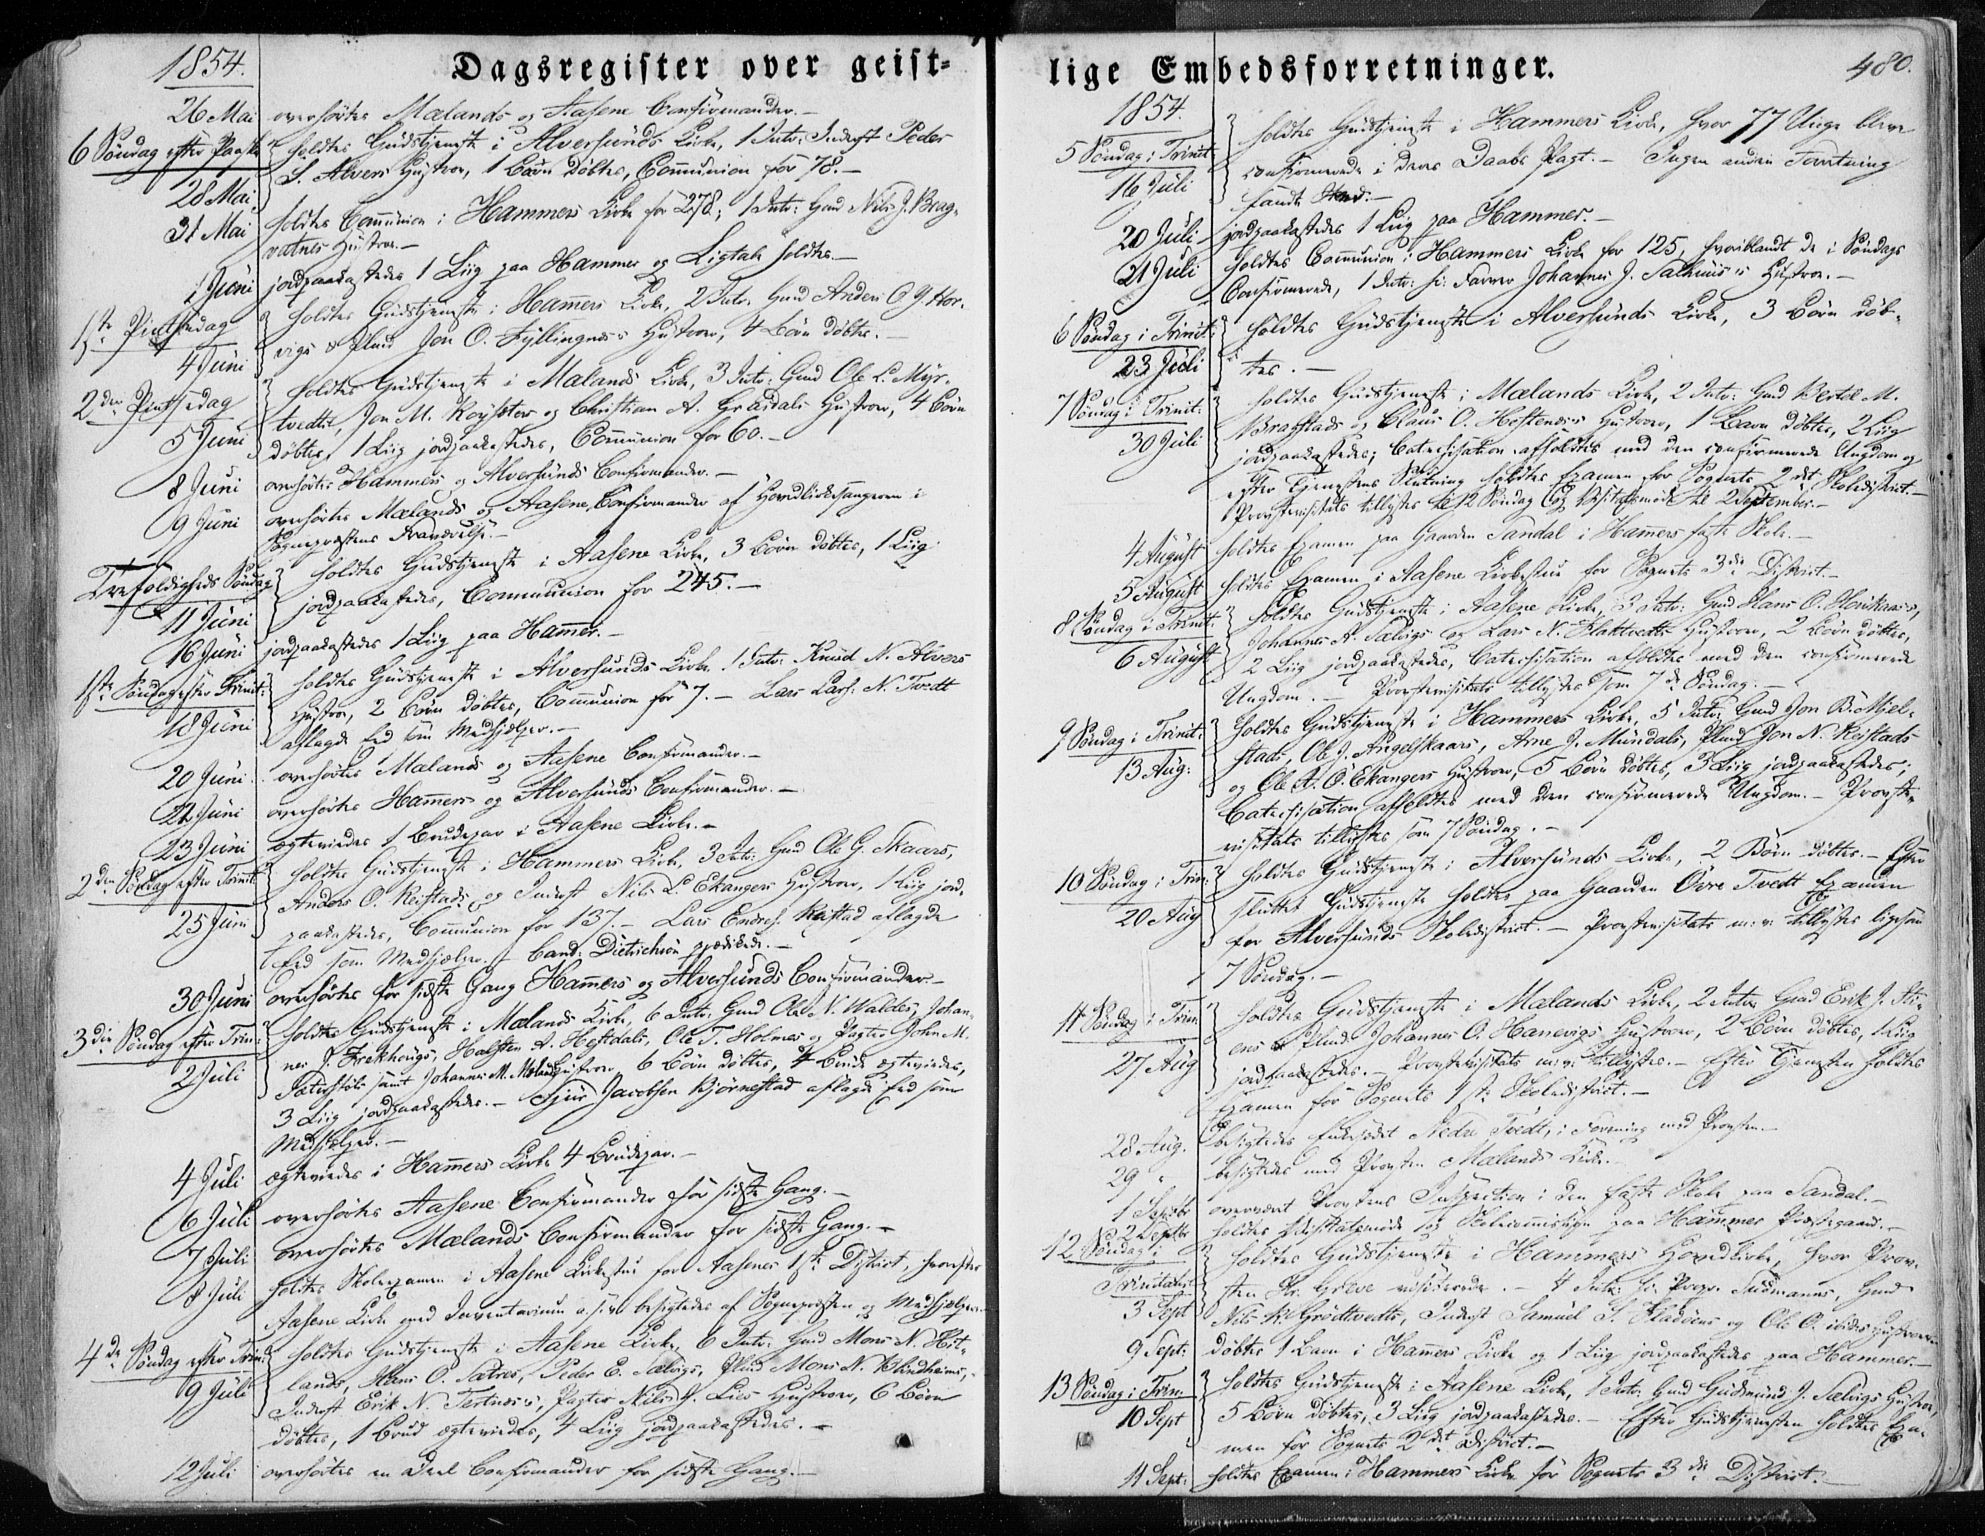 1854.
Dagsregister over geist=
26 Mai overhørtes Mælands og Aasene Confirmander.—
6 Søndag efter Paaske holdtes Gudstjeneste i Alversunds Kirke, 1 Intr: Inderst Peder
28 Mai S. Alvers Hustroe, 1 Barn døbtes, Communion for 78.—
31 Mai holdtes Communion i Hammers Kirke for 278, 1 Intr: Gmd Nils J. Brag-
vatnes Hustroe.—
1 Juni jordpaakastedes 1 Liig paa Hammer og Ligtale holdtes.—
1ste Pintsedag holdtes Gudstjeneste i Hammers Kirke, 2 Intr. Gmd Anders O. Y. Hor-
4 Juni vigs & Plmd Jon O. Fyllingnes's Hustroer, 4 Børn døbtes.—
2den Pintsedag holdtes Gudstjeneste i Mælands Kirke, 3 Intr: Gmd Ole L. Myr-
5 Juni tvedts, Jon M. Røyster og Christian A. Grasdals Hustroer, 4 Børn
døbtes, 1 Liig jordpaakastedes, Communion for 60.—
8 Juni overhørtes Hammers og Alversunds Confirmander.—
9 Juni overhørtes Mælands og Aasene Confirmander af Hovedkirkesangeren i
Sognepræstens Fraværelse.—
Trefoldigheds Søndag holdtes Gudstjeneste i Aasene Kirke, 3 Børn døbtes, 1 Liig
11 Juni jordpaakastedes, Communion for 245.—
16 Juni jordpaakastedes 1 Liig paa Hammer.—
1ste Søndag efter Trinit: holdtes Gudstjeneste i Alversunds Kirke 1 Intr: Knud N. Alvers
18 Juni Hustroe, 2 Børn døbtes, Communion for 7.— Lars Lars. N. Tvedt
aflagde Eed som Medhjelper.—
20 Juni overhørtes Mælands og Aasene Confirmander.—
22 Juni overhørtes Hammers og Alversunds Confirmander.—
23 Juni ægteviedes 1 Brudepar i Aasene Kirke.—
2den Søndag efter Trinit: holdtes Gudstjeneste i Hammers Kirke, 3 Intr: Gmd Ole G. Skaars,
25 Juni Anders O. Reistads og Inderst Nils L. Ekangers Hustroer, 1 Liig jord-
paakastedes, Communion for 137.— Lars Endres. Reistad aflagde
Eed som Medhjælper.— Cand: Dietrichson prædikede.—
30 Juni overhørtes for sidste Gang Hammers og Alversunds Confirmander.—
3die Søndag efter Trin: holdtes Gudstjeneste i Mælands Kirke, 6 Intr: Gmd Ole N. Waldes, Johan-
2 Juli nes J. Frekhougs, Halsten A. Heftdals, Ole T. Holmes og Pagter John M.
samt Johannes M. Mælands Hustroer, 6 Børn døbtes, 4 Brude ægteviedes,
3 Liig jordpaakastedes.— Sjur Jacobsen Bjørnestad aflagde Eed som
Medhjelper.—
4 Juli ægteviedes i Hammers Kirke 4 Brudepar.—
6 Juli overhørtes Aasene Confirmander for sidste Gang.—
7 Juli overhørtes Mælands Confirmander for sidste Gang.—
8 Juli holdtes Skoleexamen i Aasene Kirkestue for Aasenes 1ste District, hvorefter
Aasene Kirke med Inventarium o.s.v. besigtedes af Sognepræsten og Medhjelper.
4de Søndag efter Trin: holdtes Gudstjeneste i Aasene Kirke, 6 Intr: Gmd Mons N. Hit-
9 Juli lands, Hans O. Sætres, Peder E. Sælvigs, Plmd Mons N. Blindheims,
Inderst Erik N. Tertnes's, Pagter Nils J. Lies Hustroer, 6 Børn
døbtes, 1 Brud ægteviedes, 4 Liig jordpaakastedes.—
12 Juli overhørtes en Deel Confirmander for sidste Gang.—
lige Embedsforretninger.
480.
1854.
5 Søndag i Trinit: holdtes Gudstjeneste i Hammers Kirke, hvor 77 Unge bleve
16 Juli confirmerede i deres Daabs Pagt.— Ingen anden Forretning
fandt Sted.—
20 Juli jordpaakastedes 1 Liig paa Hammer.—
21 Juli holdtes Communion i Hammers Kirke for 125, hvoriblandt de i Søndags
Confirmerede, 1 Intr: Hr: Farver Johannes J. Salhuus's Hustroe.—
6 Søndag i Trinit: holdtes Gudstjeneste i Alversunds Kirke, 3 Børn døb-
23 Juli tes.—
7 Søndag i Trinit: holdtes Gudstjeneste i Mælands Kirke, 2 Intr: Gmd Bertel M.
30 Juli Bragstads og Claus O. Hostenes's Hustroer, 1 Barn døbtes, 2 Liig
jordpaakastedes, Catechisation afholdtes med den confirmerede Ungdom og
efter Tjenestens Slutning holdtes Examen for Sognets 2det Skoledistrict.—
Provstevisitats tillystes til 12 Søndag og Visitatsmøde til 2 September.—
4 August holdtes Examen paa Gaarden Sandal i Hammers faste Skole.—
5 August holdtes Examen i Aasene Kirkestue for Sognets 3die District.—
8 Søndag i Trinit: holdtes Gudstjeneste i Aasene Kirke, 3 Intr: Gmd Hans O. Herikaas's,
6 August Johannes A. Sælvigs og Lars N. Flattvedts Hustroer, 2 Børn døbtes,
2 Liig jordpaakastedes, Catechisation afholdtes med den confirmerede
Ungdom.— Provstevisitats tillystes som 7de Søndag.—
9 Søndag i Trinit: holdtes Gudstjeneste i Hammers Kirke, 5 Intr: Gmd Jon B. Mjel-
13 Aug: stads, Ole J. Angelskaars, Arne J. Mundals, Plmd Jon N. Reistads
og Ole A. Ø. Ekangers Hustroer, 5 Børn døbtes, 3 Liig jordpaakastedes;
Catechisation afholdtes med den confirmerede Ungdom.— Provste-
visitats tillystes som 7 Søndag.—
10 Søndag i Trin: holdtes Gudstjeneste i Alversunds Kirke, 2 Børn døbtes.— Efter
20 Aug sluttet Gudstjeneste holdtes paa Gaarden Øvre Tvedt Examen
for Alversunds Skoledistrict.— Provstevisitats m: v: tillystes ligesom
7 Søndag.—
11 Søndag i Trin: holdtes Gudstjeneste i Mælands Kirke, 2 Intr: Gmd Erik J. Sti-
27 Aug ens & Plmd Johannes O. Hanevigs Hustroer, 2 Børn døbtes, 1 Liig
jordpaakastedes.— Provstevisitats m: v: tillystes.— Efter Tjenesten holdtes
Examen for Sognets 1ste Skoledistrict.—
28 Aug. besigtedes Enkesædet Nedre Tvedt, i Forening med Provsten.—
29 " besigtedes med Provsten Mælands Kirke.—
1 Septbr overværet Provstens Inspection i den faste Skole paa Sandal.—
2 Septbr holdtes Visitatsmøde og Skolecommission paa Hammer Præstegaard.—
12 Søndag i Trinitatis holdtes Gudstjeneste i Hammers Hovedkirke, hvor Prov-
3 Sept sten Hr. Greve visiterede.— 4 Intr: Hr: Propr. Sudmanns, Gmd
Nils K. Grøttvedts, Inderst Samuel S. Fladøens og Ole O. ibides Hustroer.
9 Sept: døbtes 1 Barn i Hammers Kirke og 1 Liig jordpaakastedes paa Hammer.—
13 Søndag i Trin: holdtes Gudstjeneste i Aasene Kirke, 1 Intr: Gmd Gudmund J. Sælvigs Hustroe,
10 Sept 5 Børn døbtes, 3 Liig jordpaakastedes.— Efter Gudstjenesten holdtes Exa-
men for Sognets 2det District.—
11 Sept: holdtes Examen i Hammers Kirke for Sognets 3die District.—